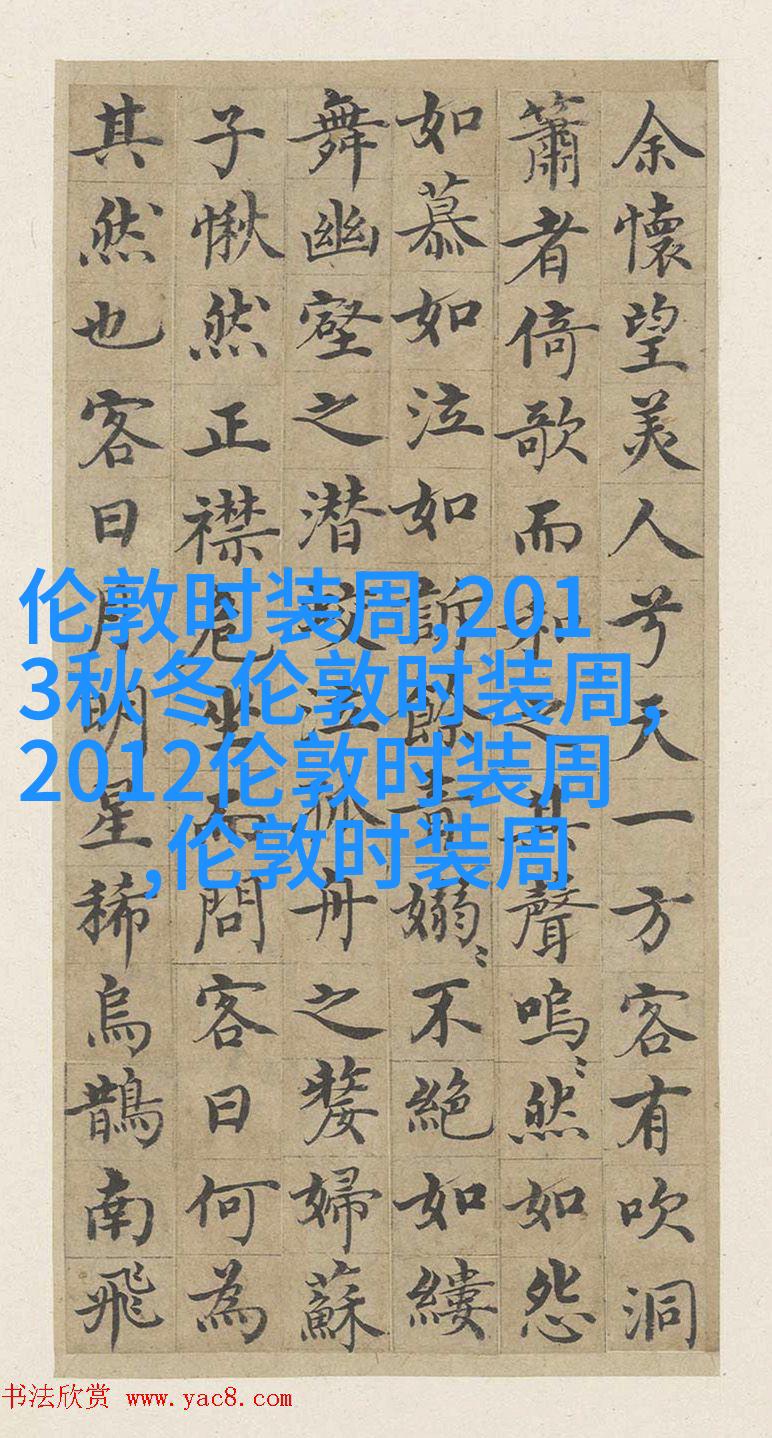 余懷望美人兮天一方客有吹洞
簫者倚歌而和之其聲嗚〻然如怨
如慕如泣如訴餘音嫋〻不絕如縷
舞幽壑之潜蛟泣孤舟之嫠婦蘇
子愀然正襟危坐而問客曰何為
其然也客曰月明星稀烏鵲南飛
伦敦时装周,201
3秋冬伦敦时装周,
2012伦敦时装周
,伦敦时装周
书法欣赏 www.yac8.com